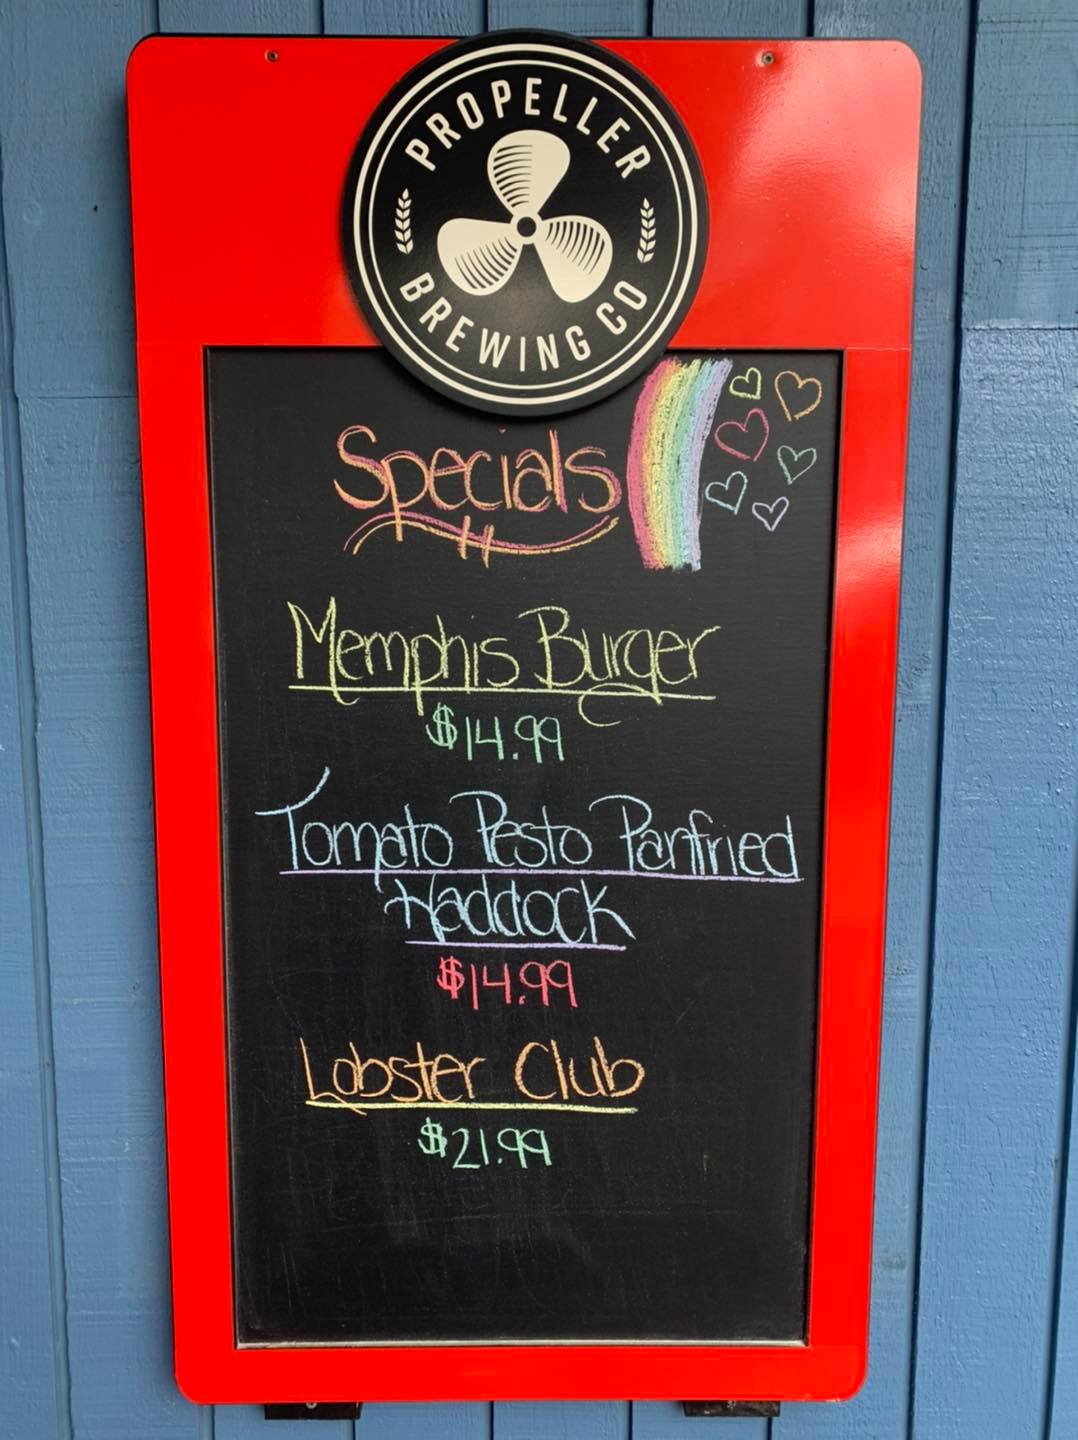 PROPELLER
BREWING CO
Specials
Memphis Burger
$14.99
Tomato Pesto Panfried
Haddock
$14.99
Lobster Club
$21.99